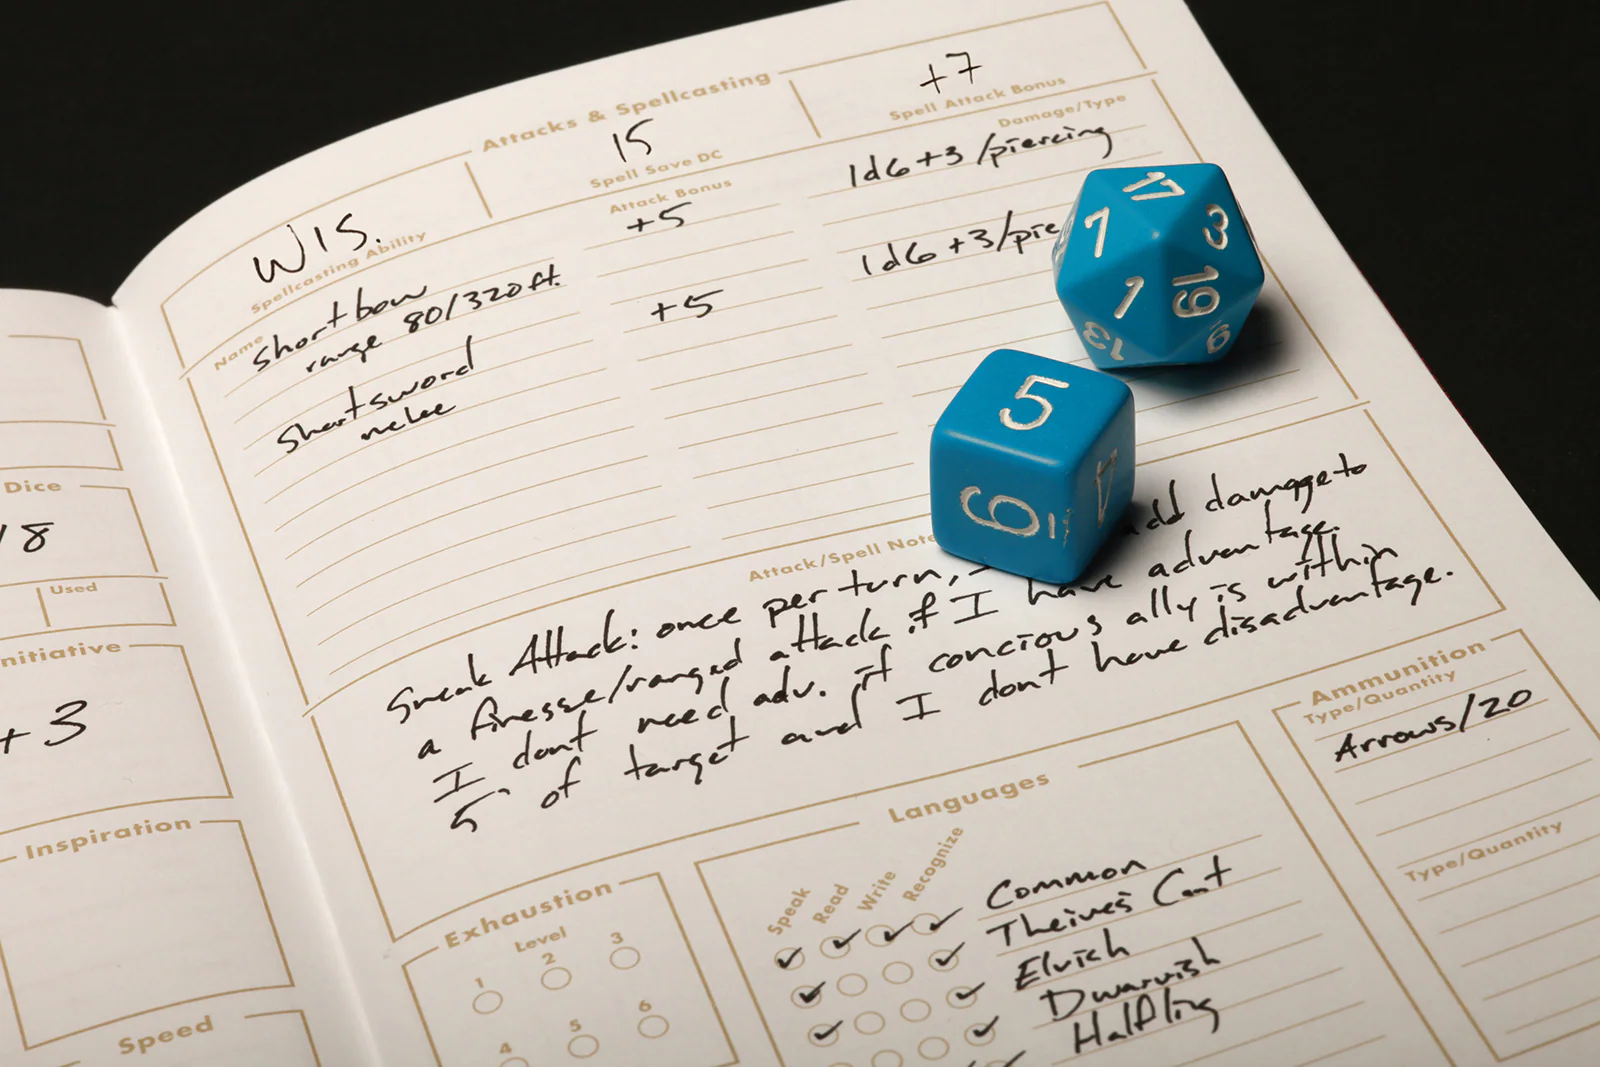 Attacks & Spellcasting
WIS.
Spellcasting Ability
15
Spell Save DC
+7
Spell Attack Bonus
Name
Attack Bonus
Damage/Type
Shortbow
+5
1d6+3/piercing
range 80/320ft.
Shortsword
+5
1d6+3/pie
melee
Attack/Spell Note
Sneak Attack: once per turn, add damage to
a finesse/ranged attack if I have advantage.
I dont need adv. if concious ally is within
5' of target and I dont have disadvantage.
Dice
18
Used
nitiative
+3
Inspiration
Speed
Exhaustion
Level
1
2
3
4
5
6
Languages
Speak
Read
Write
Recognize
Common
Theives Cant
Elvish
Dwarvish
Halfling
Ammunition
Type/Quantity
Arrows/20
Type/Quantity
17
7
3
1
19
13
9
5
6
4